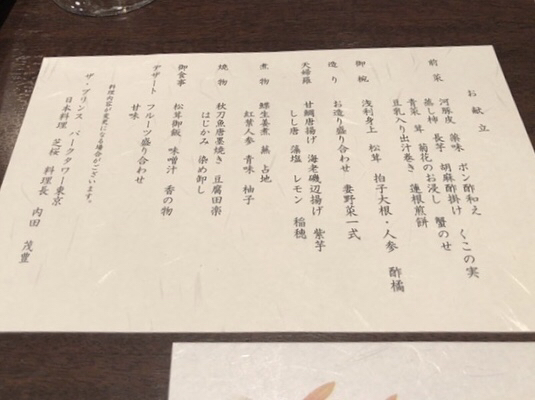 お献立
前菜 河豚皮 薬味 ポン酢和え くこの実
蒸し柿 長芋 胡麻酢掛け
青菜 茸 菊花のお浸し 蟹のせ
豆乳入り出汁巻き 蓮根煎餅
御椀 浅利身上 松茸 拍子大根・人参 酢橘
造り お造り盛り合わせ 妻野菜一式
天婦羅 甘鯛唐揚げ 海老磯辺揚げ 紫芋
しし唐 藻塩 レモン 稲穂
煮物 鰈生姜煮 蕪 占地
紅葉人参 青味 柚子
焼物 秋刀魚唐墨焼き 豆腐田楽
はじかみ 染め卸し
御食事 松茸御飯 味噌汁 香の物
デザート フルーツ盛り合わせ
甘味
料理内容が変更になる場合がございます。
ザ・プリンス パークタワー東京
日本料理 芝桜 料理長 内田 茂豊